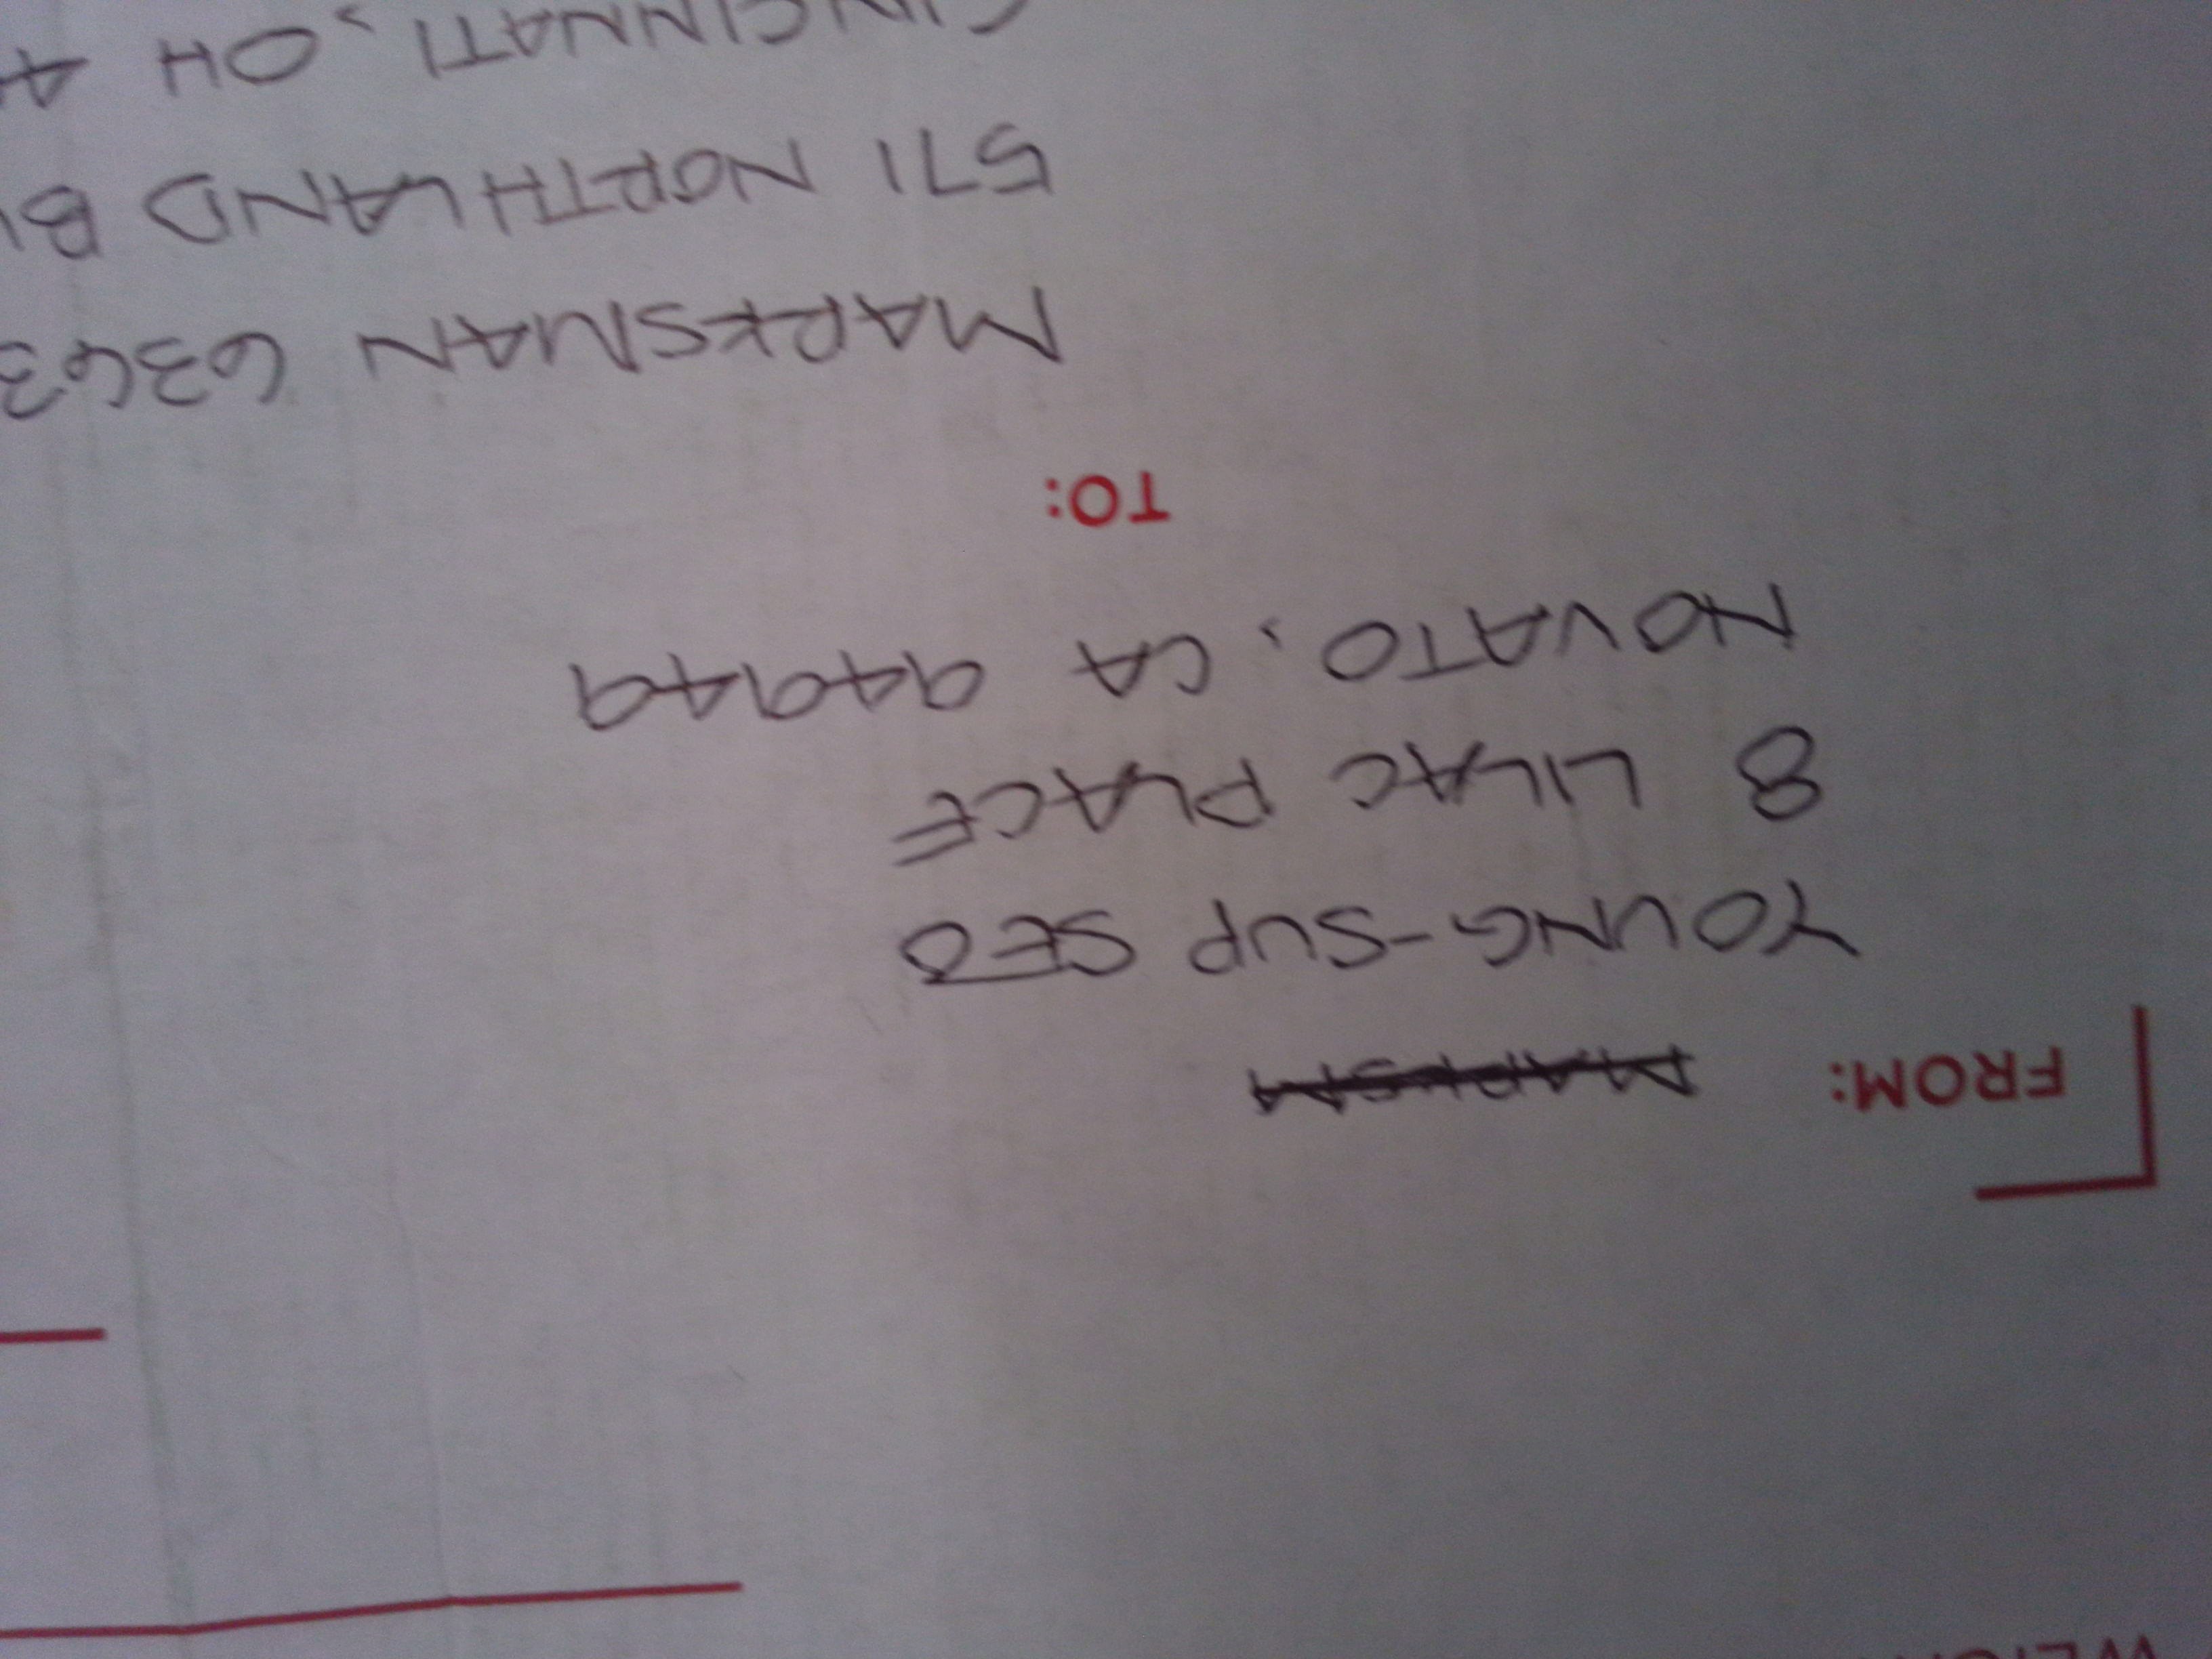 FROM: MARKSMA
YOUNG-SUP SEO
8 LILAC PLACE
NOVATO, CA 94949
TO:
MARKSMAN 6363
571 NORTHLAND
CINCINNATI, OH 4